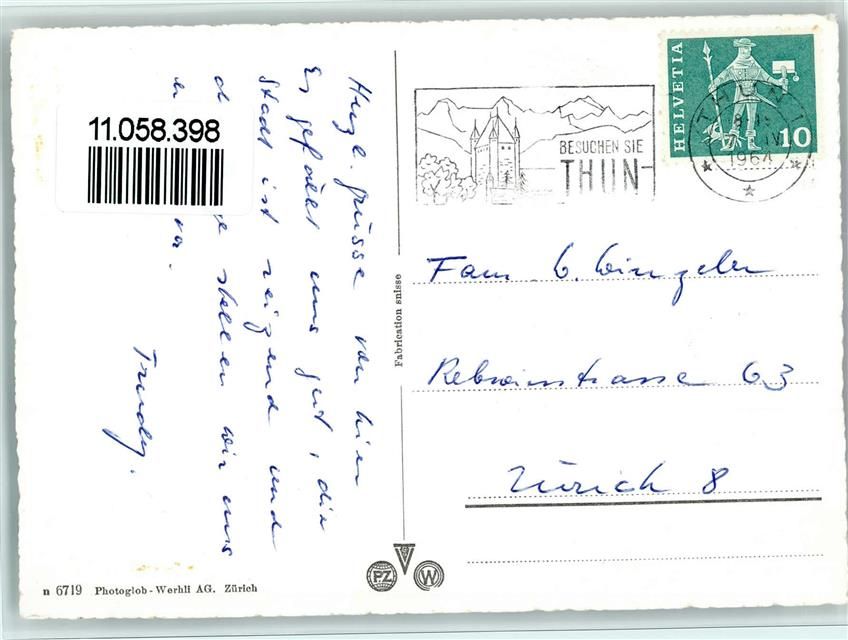 Herzl. Grüsse von hier
Es gefällt uns gut, die
Stadt ist reizend und
stellen wir uns
vor.
Trudy.
11.058.398
n 6719 Photoglob-Wehrli AG. Zürich
Fabrication suisse
PZ
W
BESUCHEN SIE
THUN
HELVETIA
10
THUN 1
IV
1964
Fam W. Wingeler
Rebwiesstrasse 63
Zürich 8